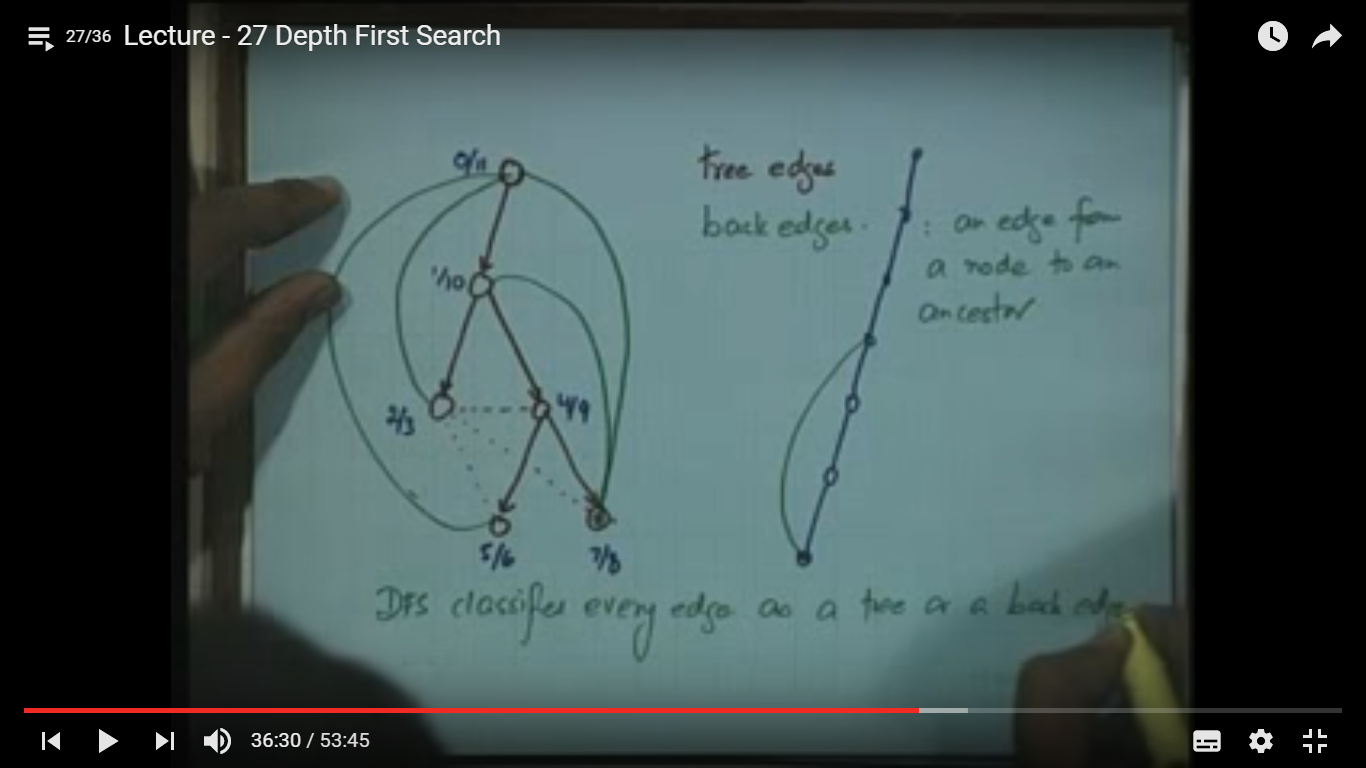 27/36 Lecture - 27 Depth First Search
0/11
tree edges
back edges. : an edge from
a node to an
ancestor
1/10
2/3
4/9
5/6
7/8
DFS classifies every edge as a tree or a back edge
36:30 / 53:45